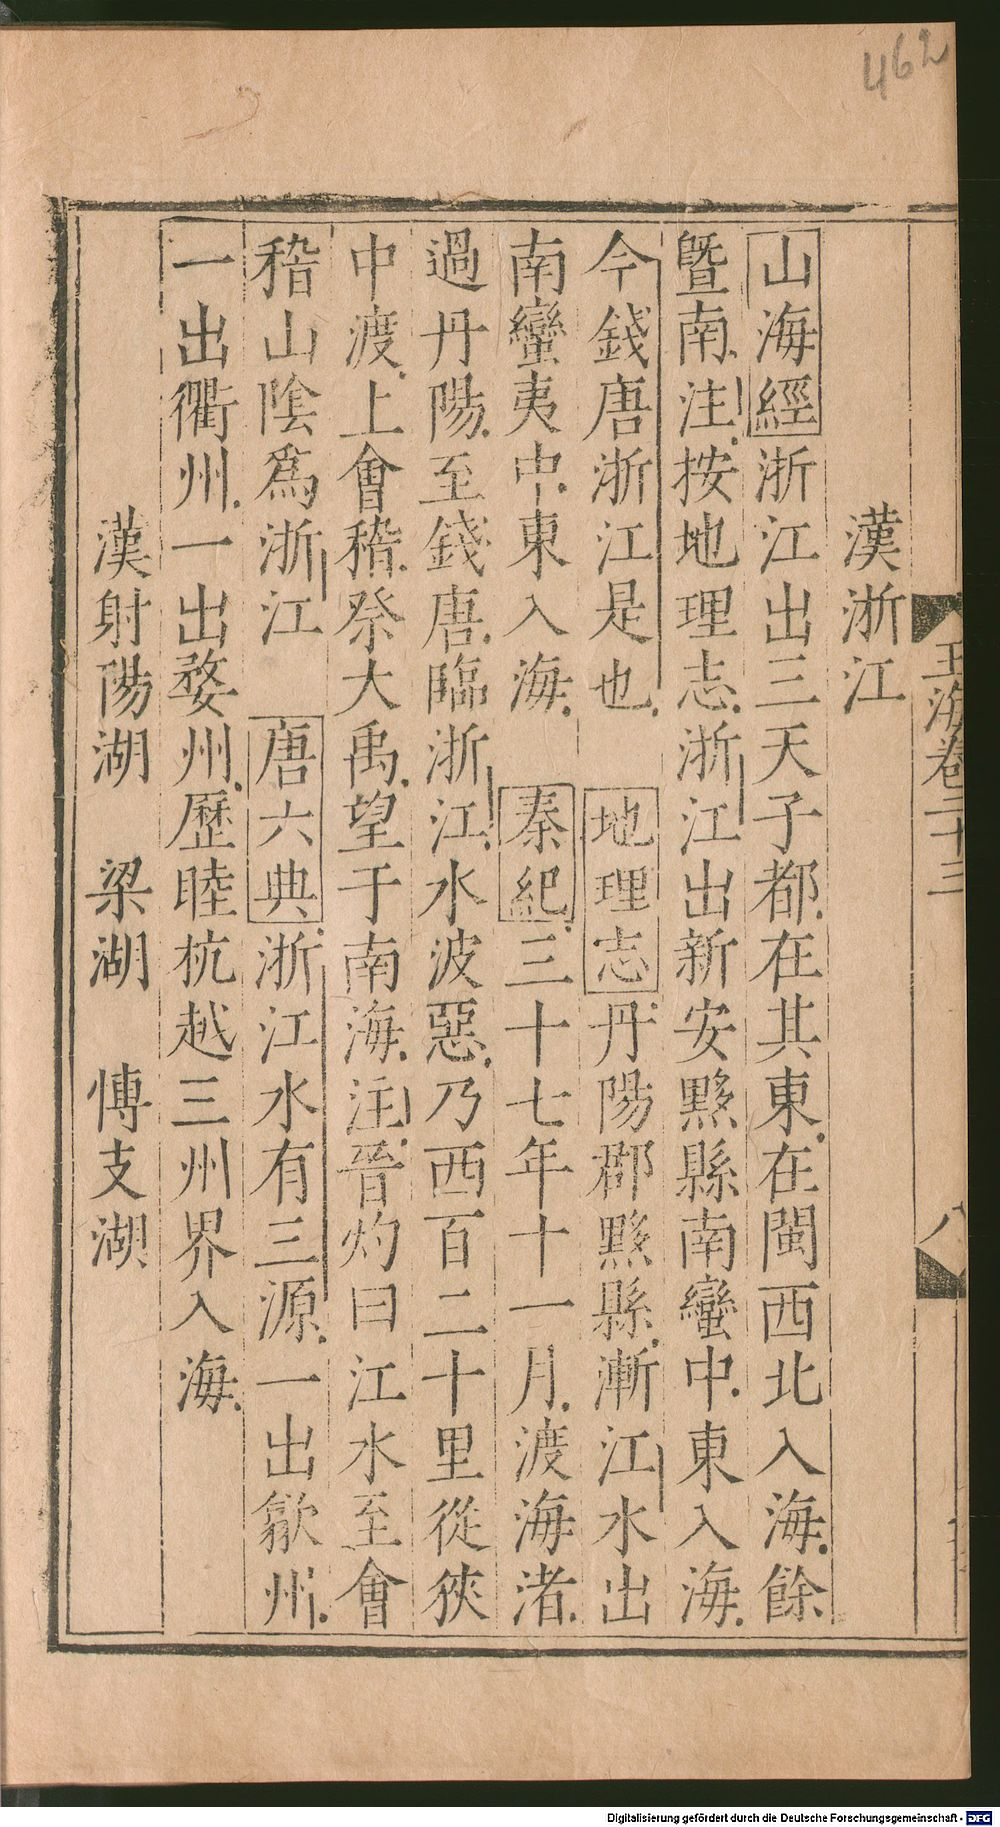 462
玉海卷二十三
八
漢浙江
山海經浙江出三天子都在其東在閩西北入海餘
曁南注按地理志浙江出新安黟縣南蠻中東入海
今錢唐浙江是也 地理志丹陽郡黟縣漸江水出
南蠻夷中東入海 秦紀三十七年十一月渡海渚
過丹陽至錢唐臨浙江水波惡乃西百二十里從狹
中渡上會稽祭大禹望于南海注晉灼曰江水至會
稽山陰爲浙江 唐六典浙江水有三源一出歙州
一出衢州一出婺州歷睦杭越三州界入海
漢射陽湖 梁湖 愽支湖
Digitalisierung gefördert durch die Deutsche Forschungsgemeinschaft - DFG